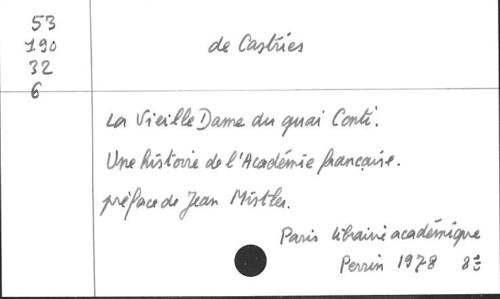 53
190
32
6
de Castries
La Vieille Dame du quai Conti.
Une histoire de l'Académie française.
préface de Jean Mistler.
Paris librairie académique
Perrin 1978 8º